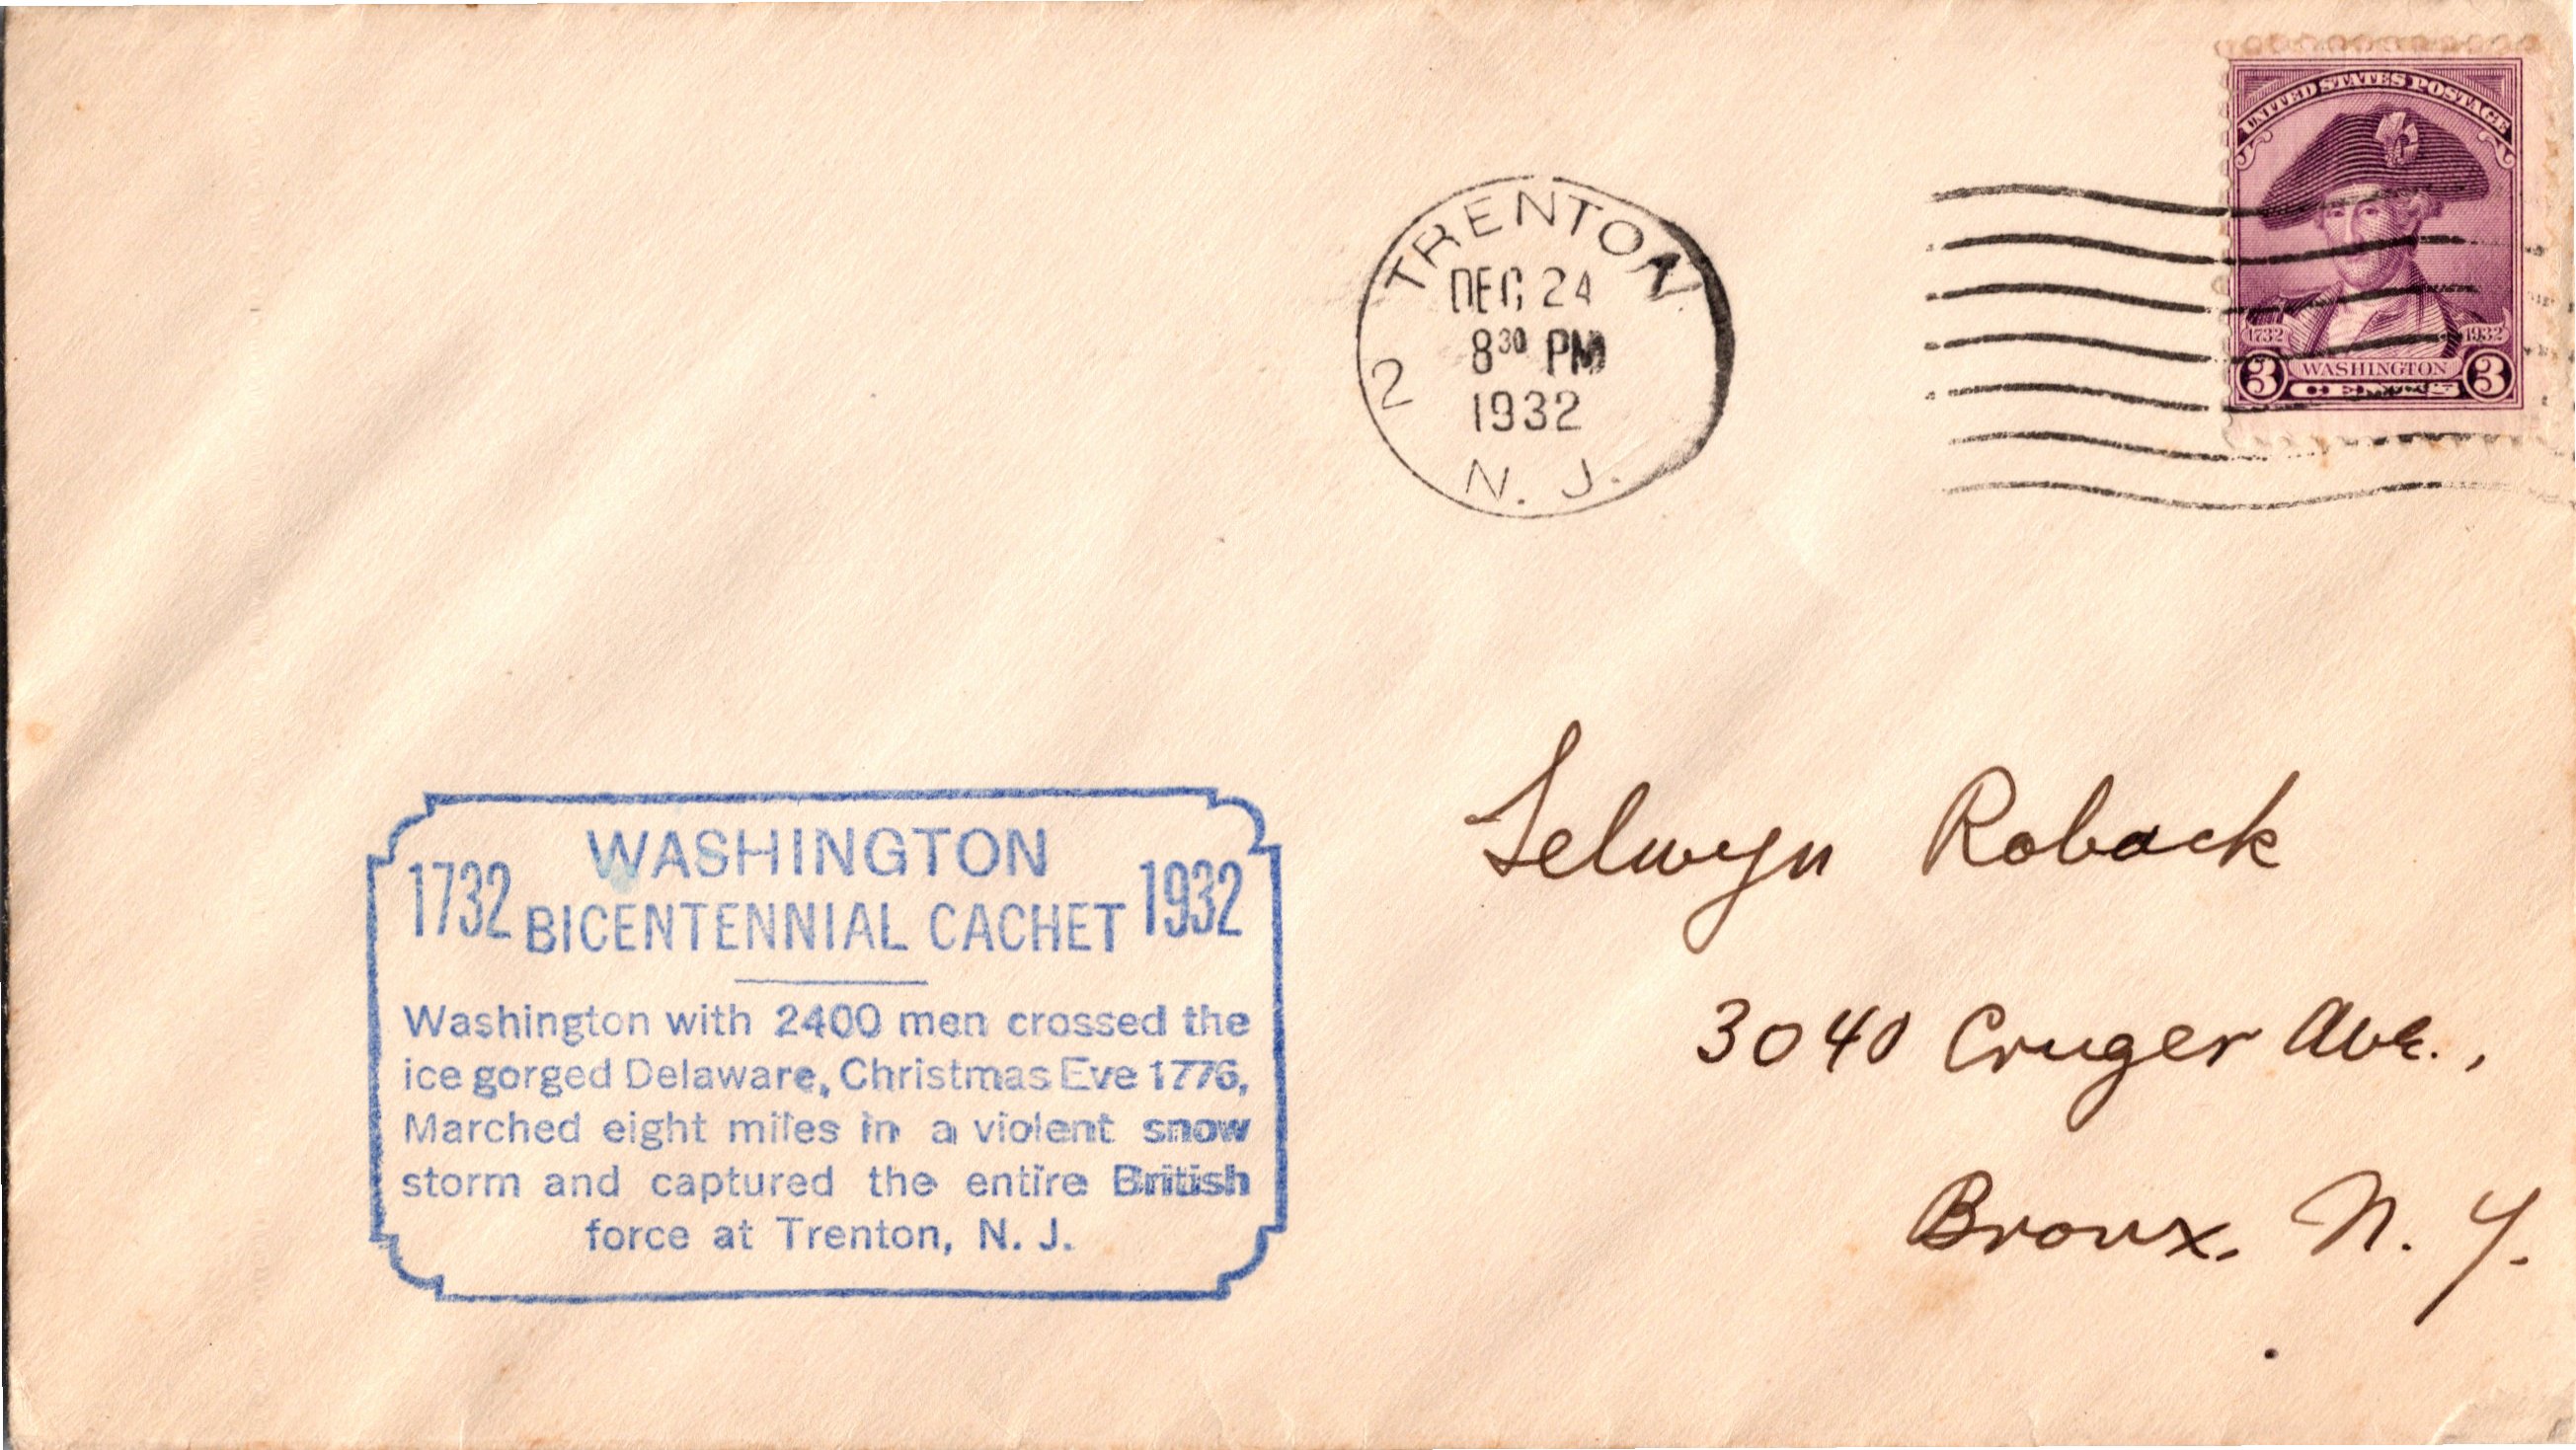 UNITED STATES POSTAGE
1732 1932
3 WASHINGTON 3
TRENTON
DEC 24
8³⁰ PM
2
1932
N. J.
Selwyn Roback
3040 Cruger Ave.,
Bronx. N. Y.
WASHINGTON
1732 BICENTENNIAL CACHET 1932
Washington with 2400 men crossed the
ice gorged Delaware, Christmas Eve 1776,
Marched eight miles in a violent snow
storm and captured the entire British
force at Trenton, N. J.